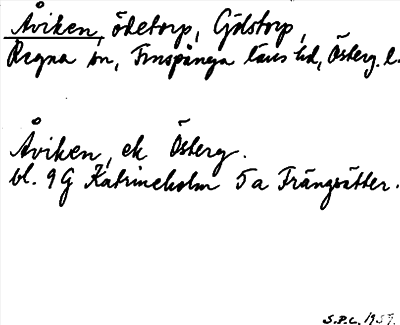 Åviken, ödetorp, Gölstorp,
Regna sn, Finspånga läns hd, Österg. l.
Åviken, ek Österg.
bl. 9G Katrineholm 5a Frängsätter.
S.P.C. 1957.